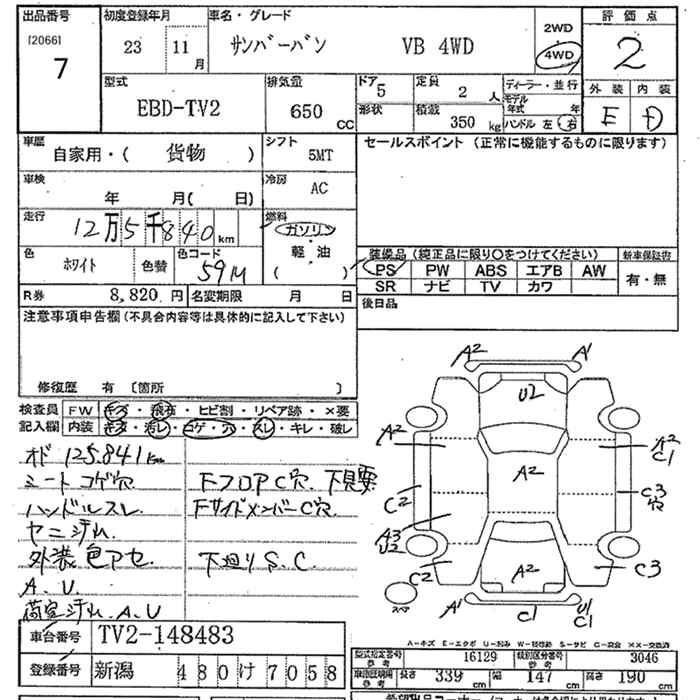 出品番号 初度登録年月 車名・グレード 2WD 評価点
[2066] 7 23 11月 サンバーバン VB 4WD 4WD 2
型式 排気量 ドア 定員 ディーラー・並行 外装 内装
EBD-TV2 650 CC 5 2 人 モデル年式 年 E D
形状 積載 350 kg ハンドル 左 右
車歴 シフト セールスポイント (正常に機能するものに限ります)
自家用・( 貨物 ) 5MT
車検 冷房
年 月( 日) AC
走行 燃料
12万5千840km ガソリン
軽・油
色 色コード 装備品 (純正品に限り○をつけてください) 新車保証書
ホワイト 色替 59M ( ) PS PW ABS エアB AW 有・無
SR ナビ TV カワ
R券 8,820円 名変期限 月 日 後日品
注意事項申告欄 (不具合内容等は具体的に記入して下さい)
修復歴 有 〔箇所 〕
検査員記入欄 FW キズ・飛石・ヒビ割・リペア跡・×要
内装 キズ・汚レ・コゲ・穴・スレ・キレ・破レ
オド 125.841km
シートコゲ穴 Fフロア C穴. 下見要
ハンドルスレ Fサイドメンバー C穴.
ヤニ汚れ
外装色アセ. 下廻り S.C.
A.U.
荷室汚れ.A.U
A2 A1
U2
A2 A2 A2 C1
C2 C3
A3 U2
C2 A2 C3
スペア A1 C1 U1 C1
車台番号 TV2-148483
登録番号 新潟 480け7058
A-キズ E-エクボ U-凹み W-補修跡 S-サビ C-腐食 XX-交換済
型式指定番号 参考 16129 類別区分番号 参考 3046
長さ 339 cm 幅 147 cm 高さ 190 cm